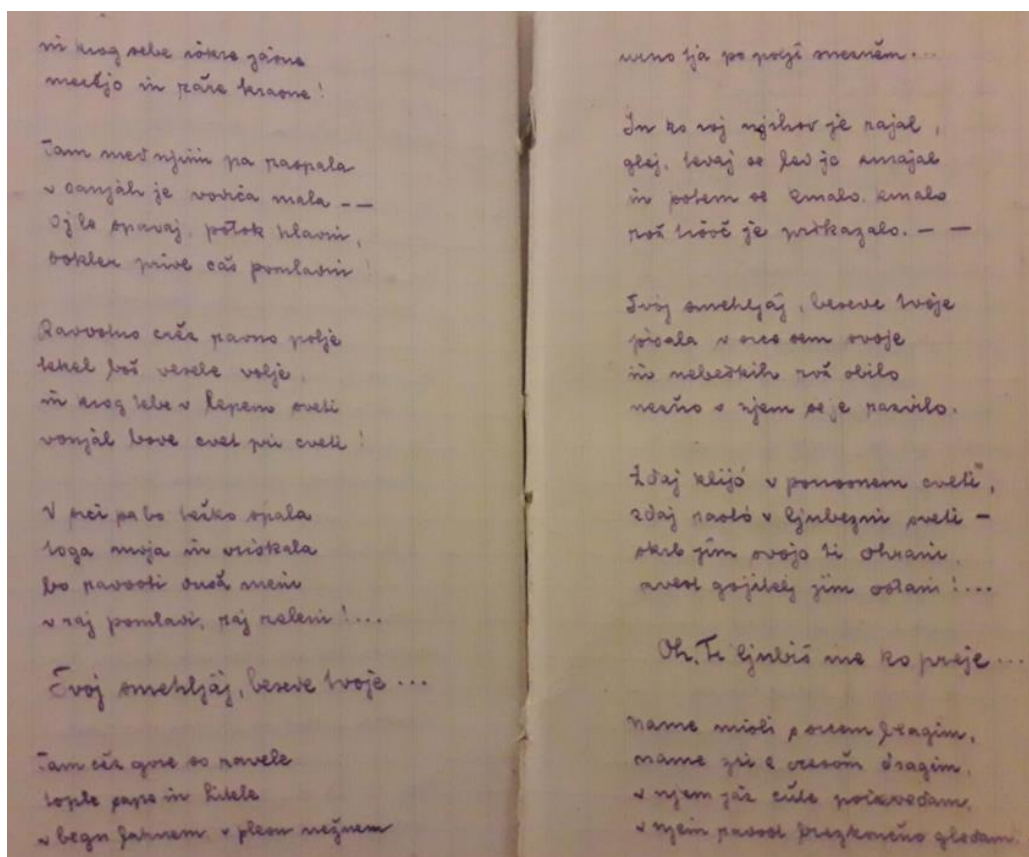 in krog sebe iskre jásne
mečejo in žáre krasne!
Tam med njimi pa zaspala
v sanjáh je vodica mala --
Oj le spavaj, potok hladni,
dokler pride čas pomladni!
Radostno črez ravno polje
tekel boš vesele volje,
in krog tebe v lepem sveti
vonjál bode cvet pri cveti!
V srci pa bo težko spala
toga moja in vriskala
bo radosti duša meni
v raj pomladi, raj zeleni!...
Tvoj smehljáj, besede tvoje...
Tam čez gore so zavele
tople sape in hitele
v begu lahnem v plesu nežnem
urno tja po polji snežném...
In ko roj njihov je rajal,
glej, tedaj se led je
in potem se kmalo, kmalo
rož tisoč je prikazalo. — —
Tvoj smehljáj, besede tvoje
pisala v srce sem svoje
in nebeških rož obilo
nežno v njem se je razvilo.
Zdaj klijó v ponosnem cveti,
zdaj rastó v ljubezni sveti —
skrb jim svojo ti ohrani,
zvest gojitelj jim ostani!...
Oh, Ti ljubiš me ko preje...
Name misli s srcem blagim,
name zri z očesom dragim,
v njem jaz čute poizvedam,
v njem radost brezkončno gledam.